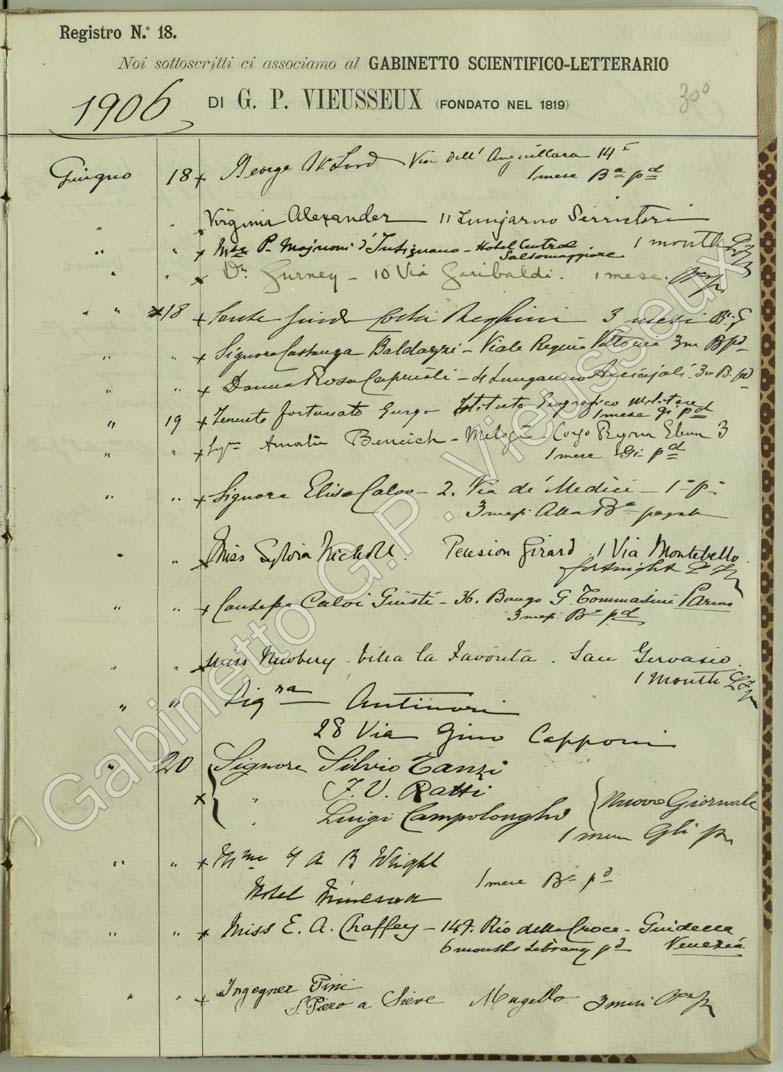 Registro N.° 18.
Noi sottoscritti ci associamo al GABINETTO SCIENTIFICO-LETTERARIO
1906 DI G. P. VIEUSSEUX (FONDATO NEL 1819) 300
Giugno 18 x George W Lord Via dell' Anguillara 14
1 mese Ba pd
" " Virginia Alexander 11 Lungarno Serristori
" " x P. Majnoni d'Intignano - Hotel Central 1 month
Salsomaggiore
" " x Dr Gurney - 10 Via Garibaldi. 1 mese.
" " x 18 x Costa Reghini 3 mesi
" " x Signora Costanza Baldazzi - Viale Regina Vittoria 3m B pd
" " x Donna Rosa - Lungarno Acciajoli. 3m B. pd
" 19 x Tenente Fortunato Istituto Geografico Militare
1 mese Gi pd
" " x Amalia - Corso Regina Elena 3
1 mese Gi pd
" " x Signora Elisa Calvo - 2. Via de' Medici - 1° p°
3 mesi Alta Ba pagato
" " x Miss Sylvia Nicholl. Pension Girard. 1 Via Montebello
fortnight
" " x Calvi Giusti - 36. Borgo G. Tommasini Parma
3 mesi Ba pd
" " x Miss Newbery. Villa la Favorita. San Gervasio.
1 month
" " Sigra Antinori
28 Via Gino Capponi
" 20 Signore Silvio Tanzi
x " F. V. Ratti Nuovo Giornale
" Luigi Campolonghi
1 mese
" " x Mme A B Wright
1 mese Ba pd
Hotel Minerva
" " x Miss E. A. Chaffey - 147. Rio della Croce - Guidecca
6 months Library pd Venezia
" " x Ingegner Pini
S. Piero a Sieve Mugello 3 mesi
Gabinetto G.P. Vieusseux